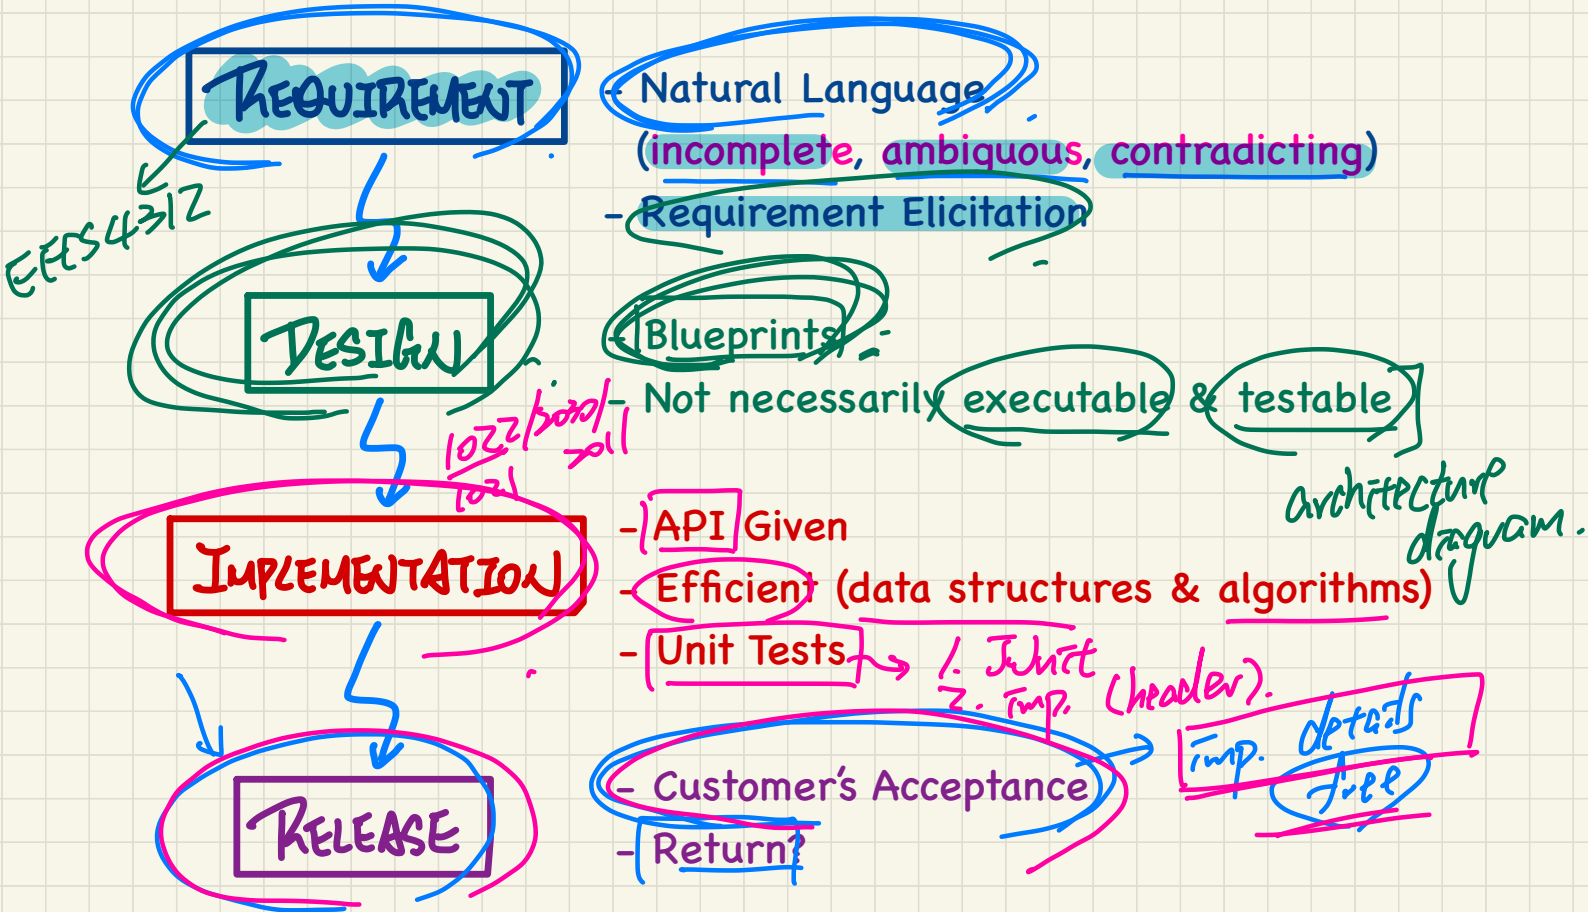 REQUIREMENT
- Natural Language
(incomplete, ambiquous, contradicting)
- Requirement Elicitation
EECS4312
DESIGN
- Blueprints
- Not necessarily executable & testable
architecture
diagram.
1022/2030/
2011
1021
IMPLEMENTATION
- API Given
- Efficient (data structures & algorithms)
- Unit Tests
1. JUnit
2. imp. (header).
imp. details
free
RELEASE
- Customer's Acceptance
- Return?